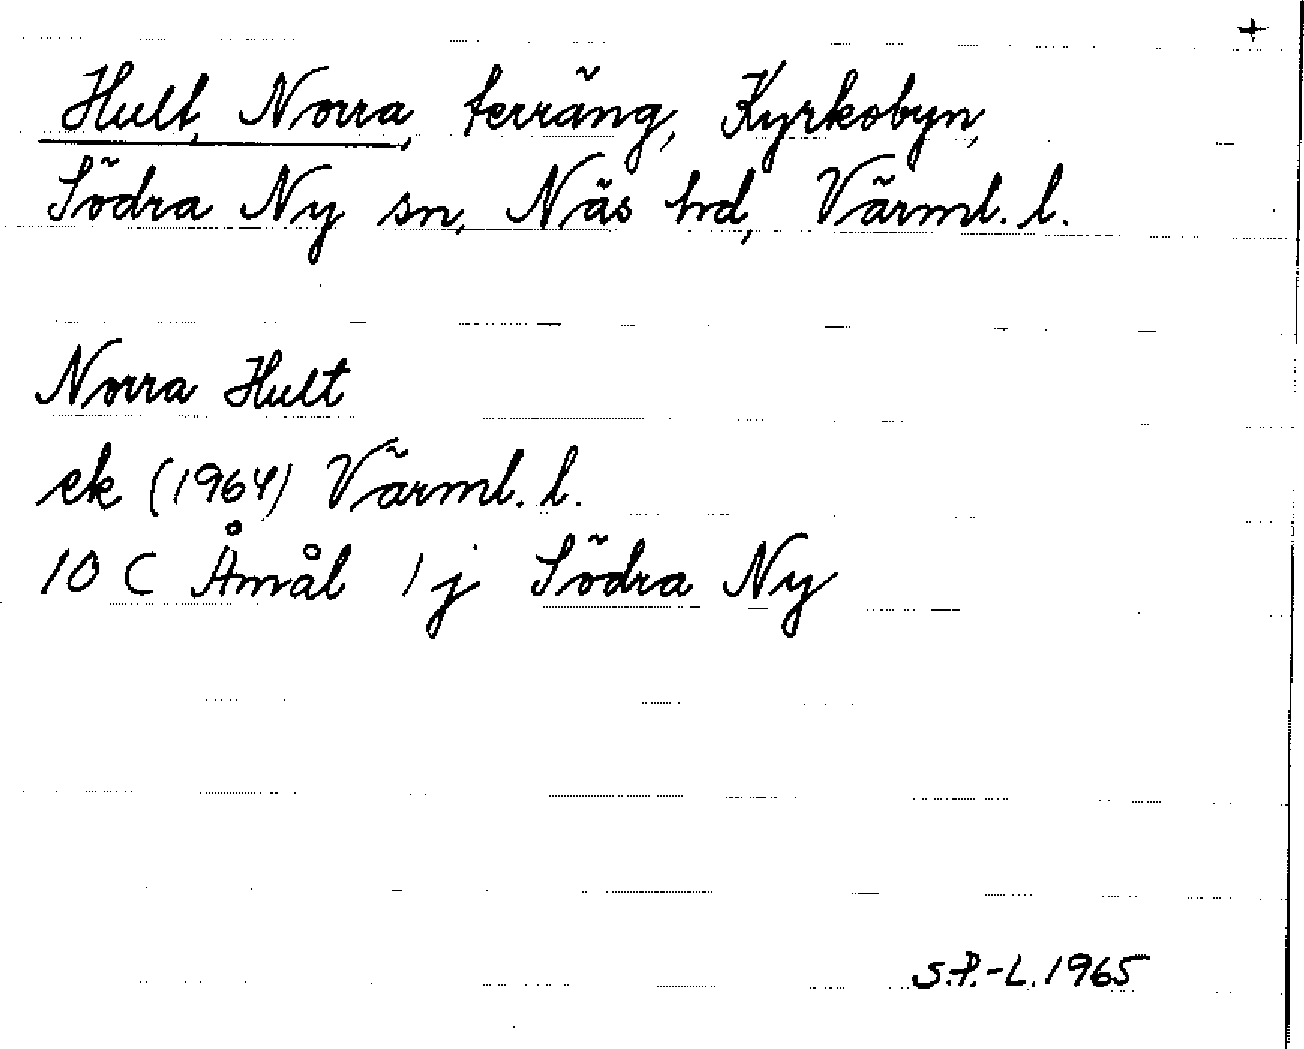 +
Hult, Norra, terräng, Kyrkobyn,
Södra Ny sn, Näs hd, Värml. l.
Norra Hult
ek (1964) Värml. l.
10 C Åmål 1 j Södra Ny
S.P.-L. 1965